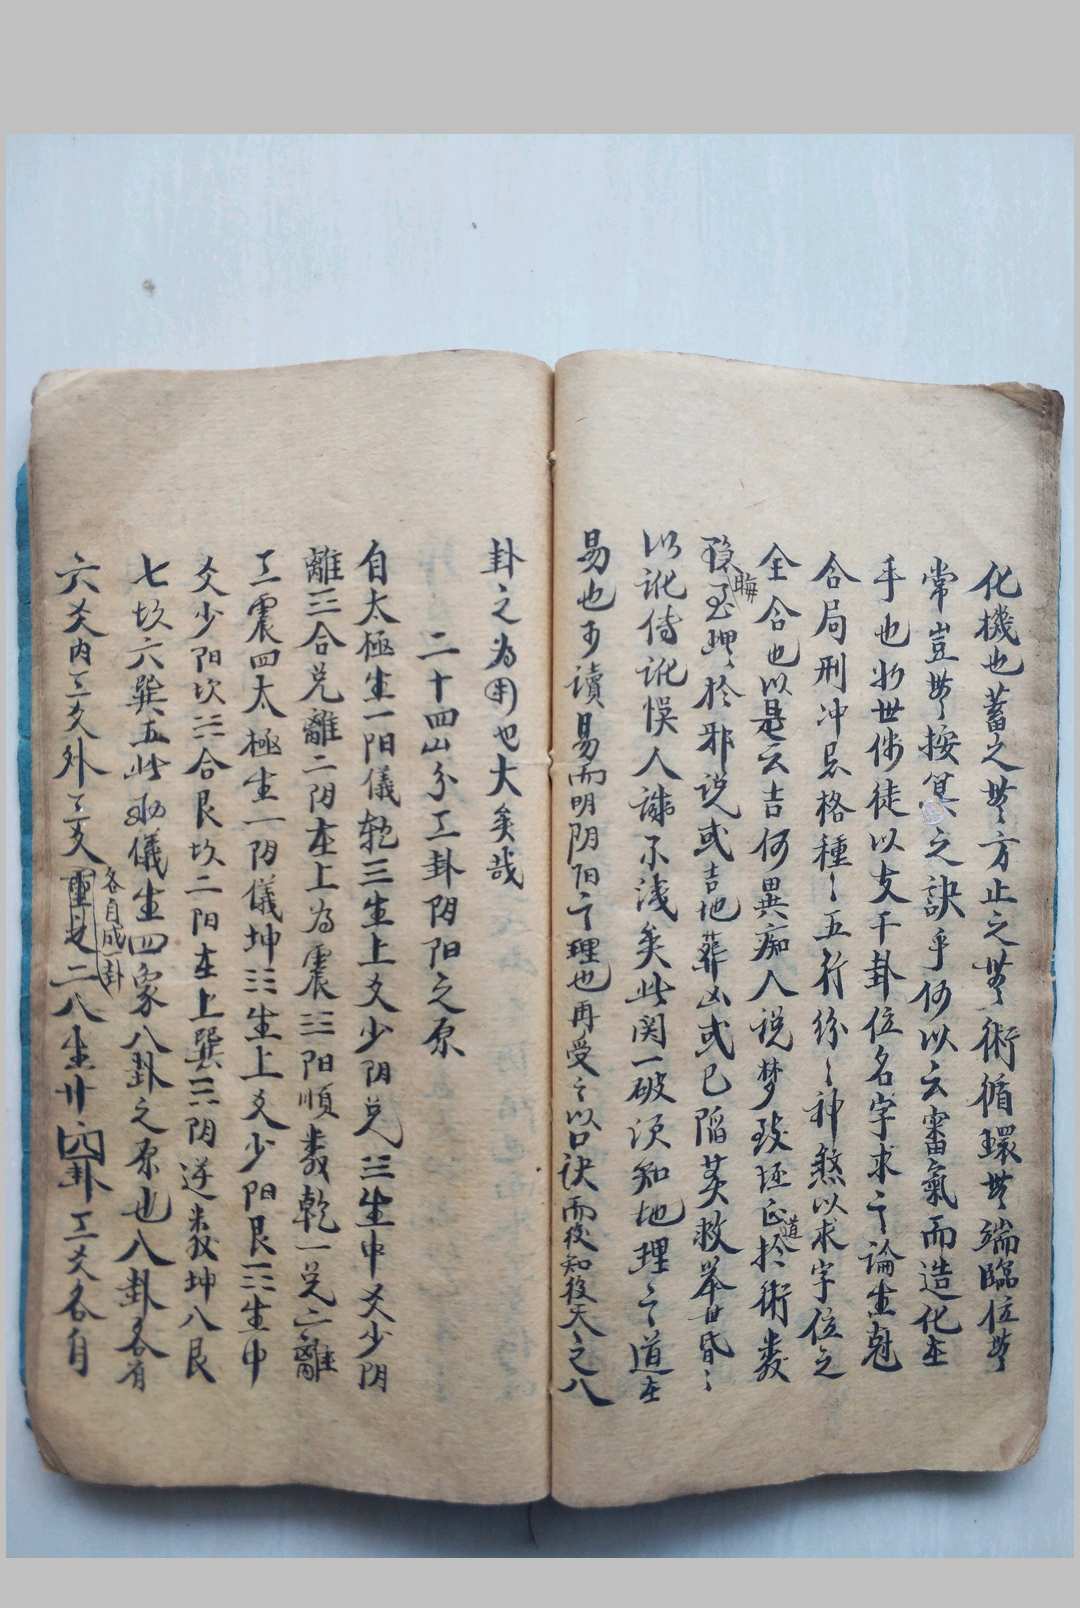 化機也蓄之無方止之無術循環無端臨位無
常豈無按冥之訣乎何以云審氣而造化在
手也於世俗徒以支干卦位名字求之論生剋
合局刑冲忌格種〻五行紛〻神煞以求字位之
全合也以是云吉何異痴人说梦致坯正道扵術数
穏晦至理扵邪说或吉地葬凶或已陷莫救举世昏〻
以讹传讹悮人誠不浅矣此関一破须知地理之道在
易也可讀易而明阴阳之理也再受之以口訣而後知後天之八
卦之為用也大矣哉
二十四山分三卦阴阳之原
自太極生一阳儀乾三生上爻少阴兑☱生中爻少阴
離三合兑離二阴在上為震☳阳順数乾一兑二離
三震四太極生一阴儀坤☷生上爻少阳艮☶生中
爻少阳坎☵合艮坎二阳在上巽☴阴逆数坤八艮
七坎六巽五此兩儀生四象八卦之原也八卦各有
六爻内三爻外三爻重之各自成一卦二八生廿四卦三爻各自